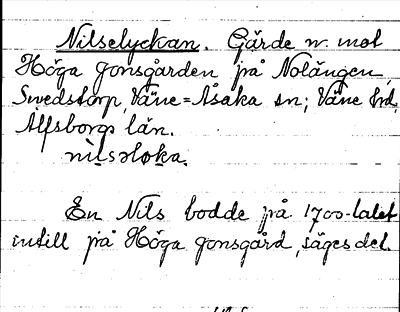 Nilselyckan. Gärde n. mot
Höga Jonsgården på Nolängen,
Swedstorp, Väne=Åsaka sn; Väne hd,
Älfsborgs län.
nilsəløka.
En Nils bodde på 1700-talet
intill på Höga Jonsgård, säges det.